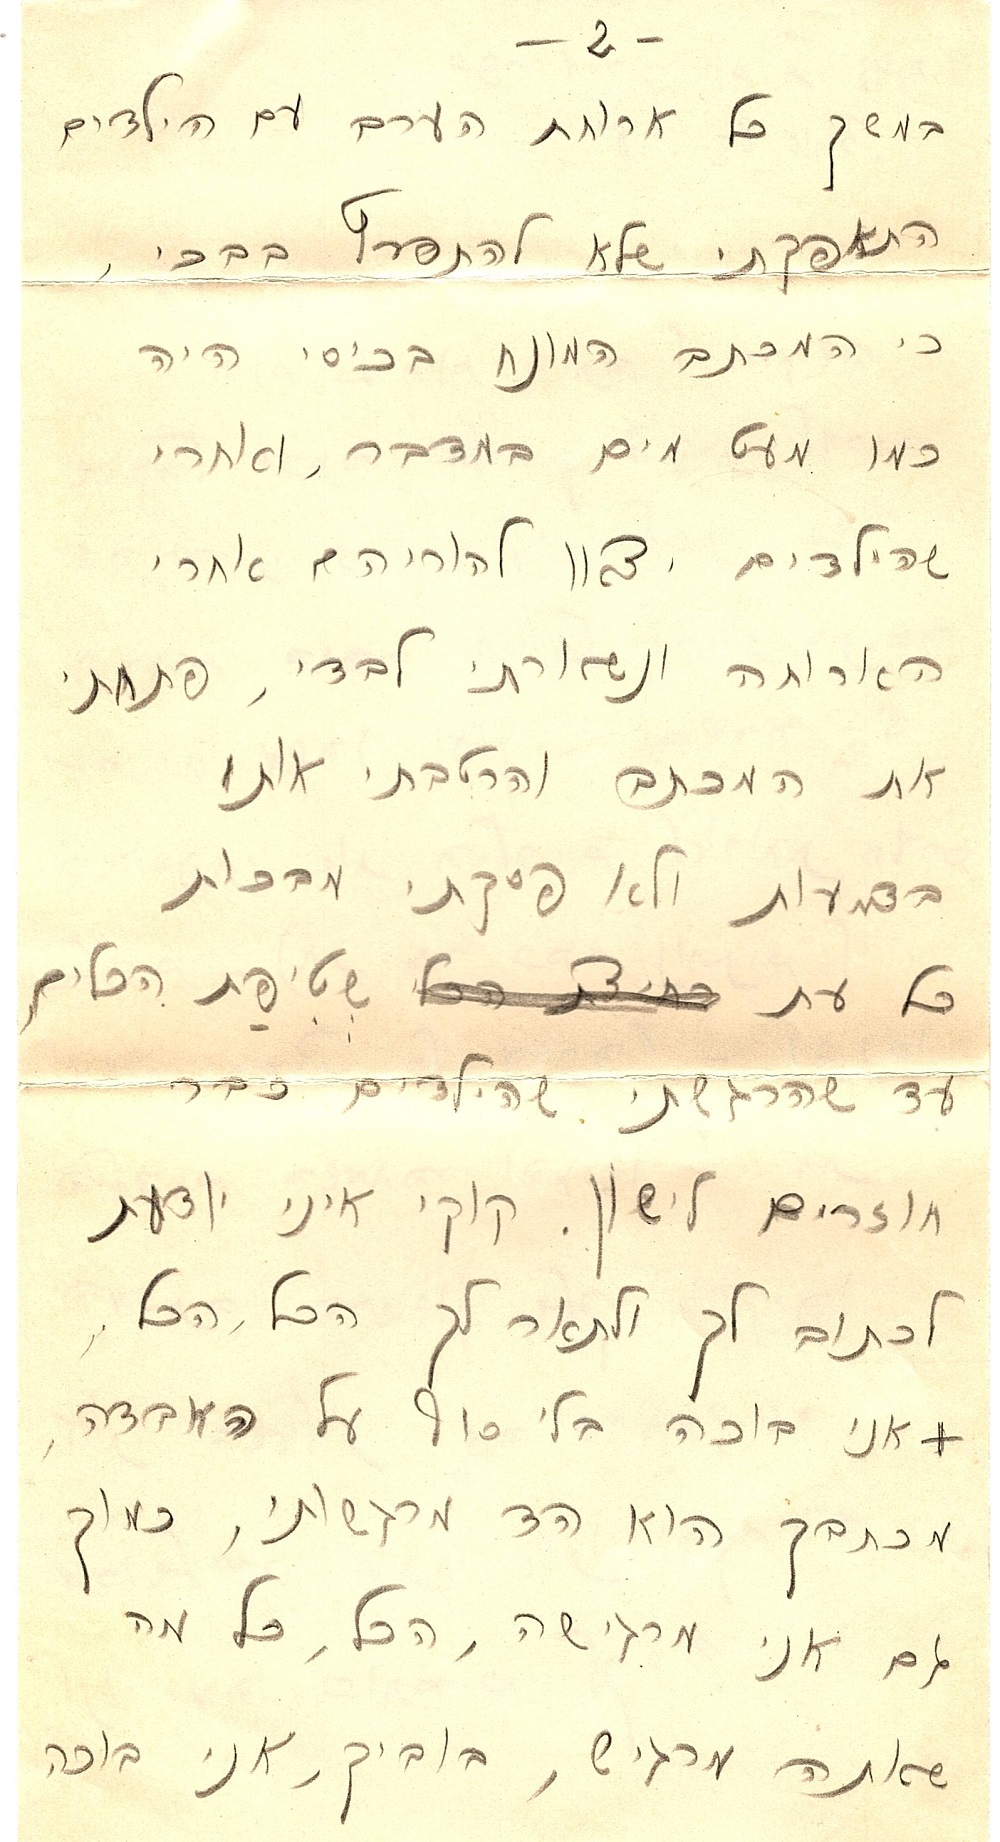 - 2 -
במשך כל ארוחת הערב עם הילדים
התאפקתי שלא להתפרץ בבכי,
כי המכתב המונח בכיסי היה
כמו מעט מים במדבר, ואחרי
שהילדים יצאו להוריהם אחרי
הארוחה ונשארתי לבדי, פתחתי
את המכתב והרטבתי אותו
בדמעות ולא פסקתי מבכות
כל עת שְטִיפַת הכלים,
עד שהרגשתי שהילדים כבר
חוזרים לישון. קוקי איני יודעת
לכתוב לך ולתאר לך הכל, הכל,
+אני בוכה בלי סוף על האבדה,
מכתבך הוא הד מרגשותי, כמוך
גם אני מרגישה, הכל, כל מה
שאתה מרגיש, בוביק, אני בוכה